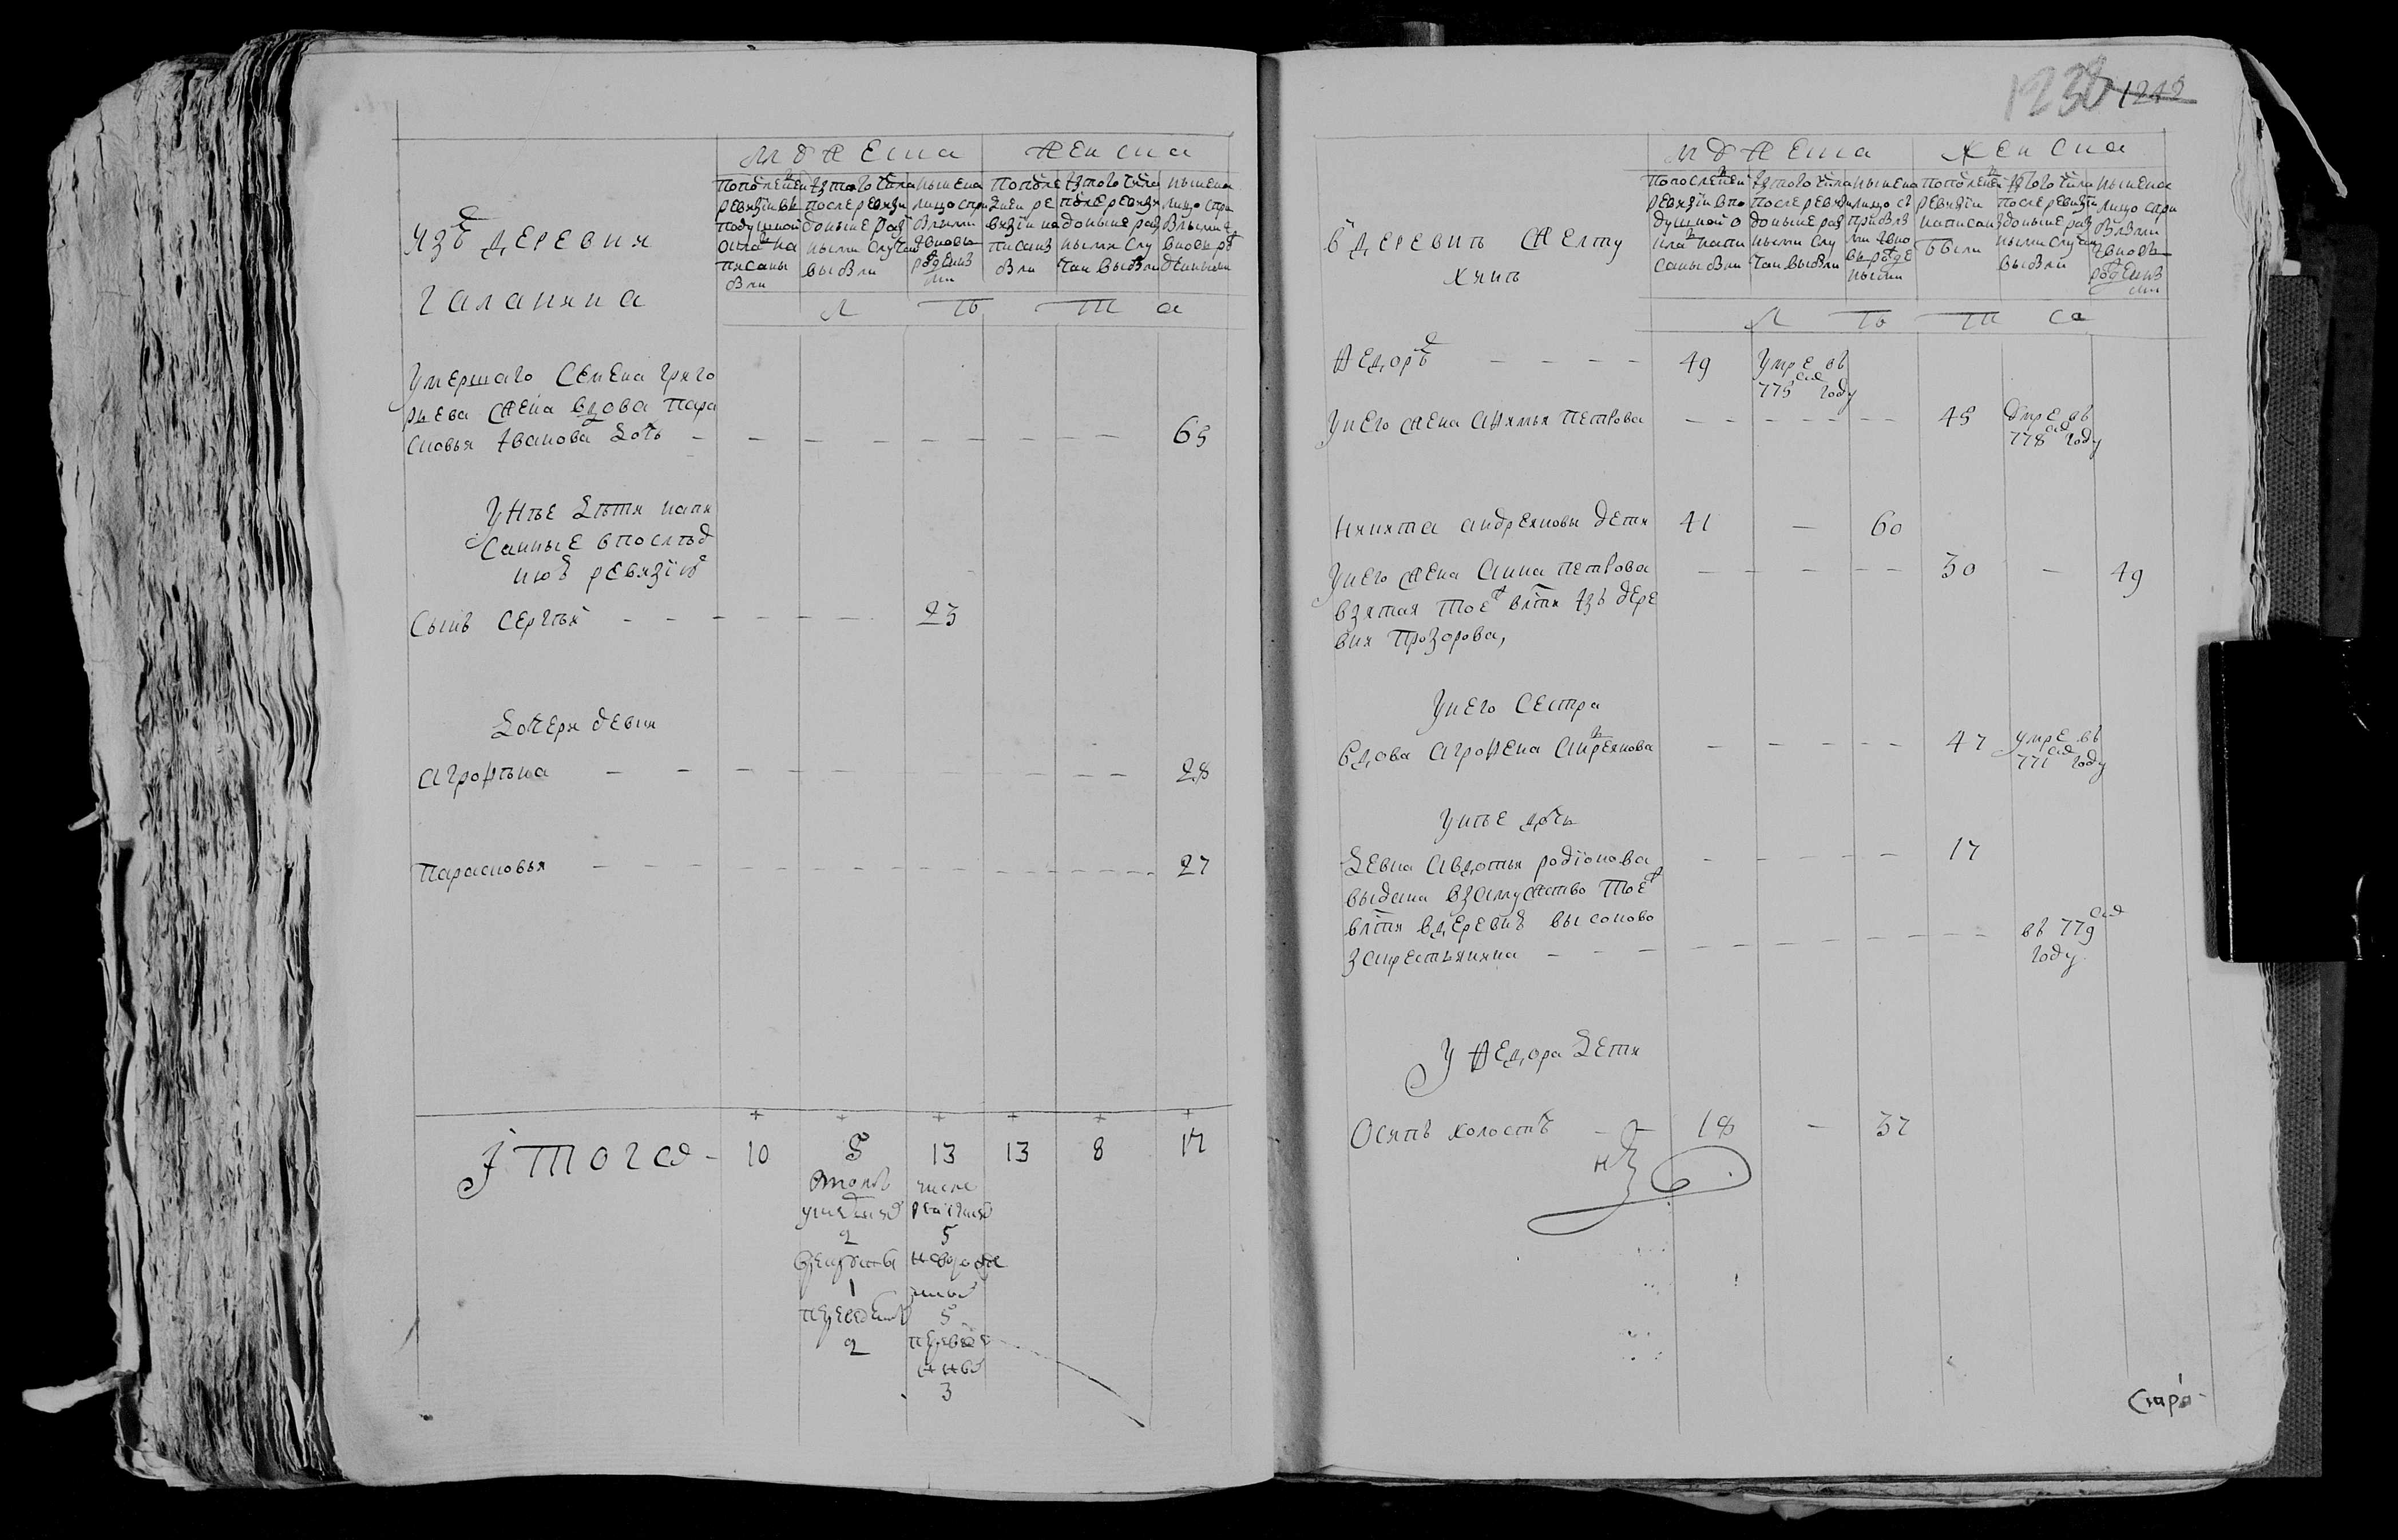 изъ деревни
галанина
мужеска женска
По последней ревизии въ подушной окладъ написаны были
Изъ того числа после ревизии доныне разными случаи выбыли
Ныне на лицо с прибылыми и вновь рожденными
По последней ревизии написано были
Изъ того числа после ревизии доныне разными случаи выбыли
Ныне на лицо с прибылыми и вновь рожденными
Л Ѣ Т а
Умершаго Семена григо
рьева жена вдова пара
сковья Иванова дочь - - - 65
У нѣе дѣти напи
санные в послѣд
нюю ревизїю
Сынъ Сергѣй - - - 23
Дочери девки
Агрофѣна - - - 28
Парасковья - - - 27
Итого - 10 5 13 13 8 17
в томъ числе
2 5
1
5
2
3
1238 1242
в деревнѣ желту
хинѣ
мужеска женска
По последней ревизии в подушной окладъ написаны были
Изъ того числа после ревизии доныне разными случаи выбыли
Ныне на лицо с прибылыми и вновь рожденными
По последней ревизии написано были
Изъ того числа после ревизии доныне разными случаи выбыли
Ныне на лицо с прибылыми и вновь рожденными
Л Ѣ Т а
Ѳедоръ - - - - 49 Умре въ
775 году
У него жена Афимья петрова - - - 45 Умре въ
778 году
Никита андреяновы дети 41 - 60
У него жена Анна петрова - - - 30 - 49
взятая тоеж вотчи изъ дере
вни прозорова,
У него сестра
Вдова Агрофена Андреянова - - - 47 умре въ
771 году
У нѣе дочь
Девка Авдотья родїонова - - - 17
выдана в замужство тоеж
вотчи в деревню высоково
за крестьянина - - - въ 779
году
У Ѳедора дети
Осипъ холостъ - - 18 - 37
Старо-